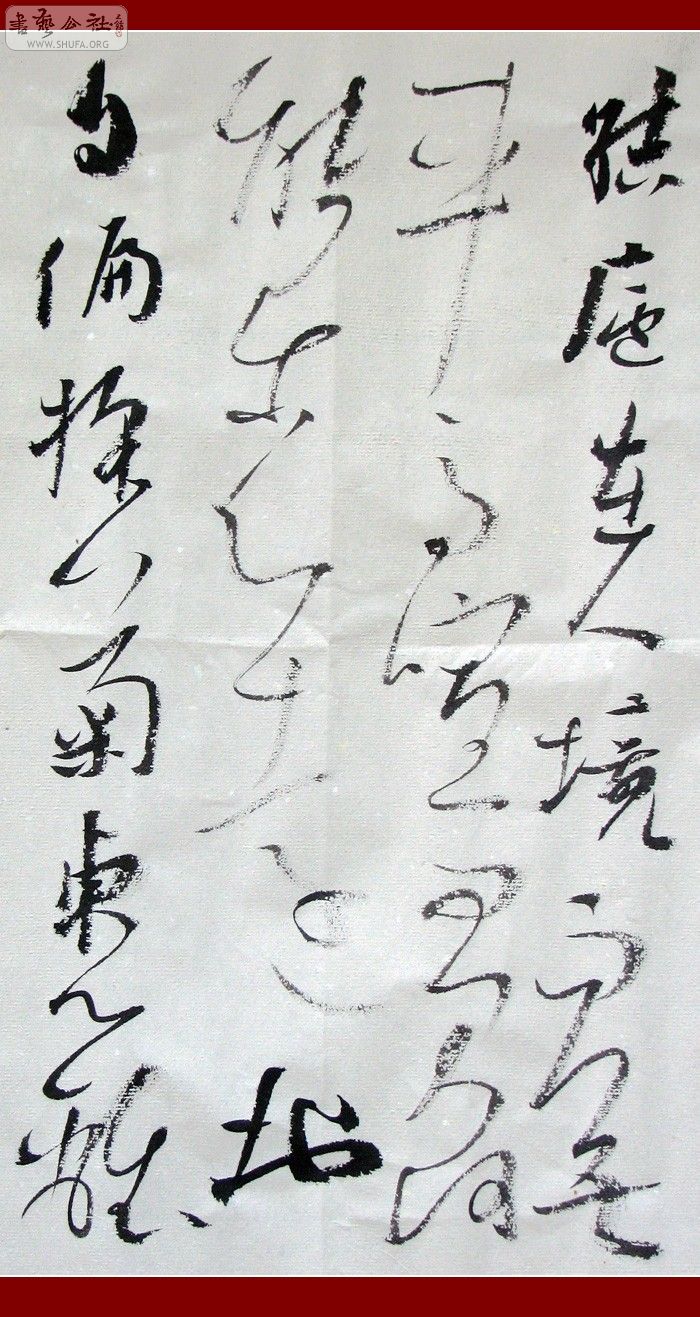 結廬在人境而無
車馬喧君何
能尔心遠地
自偏採菊東籬
書藝公社
WWW.SHUFA.ORG